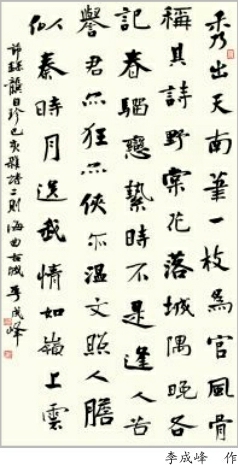 秀出天南筆一枝為官風骨
稱其詩野棠花落城隅晚各
記春騮戀縶時不是逢人苦
譽君亦狂亦俠亦溫文照人膽
似秦時月送我情如嶺上雲
錄龔自珍己亥雜詩二則 海曲 李成峰
李成峰 作